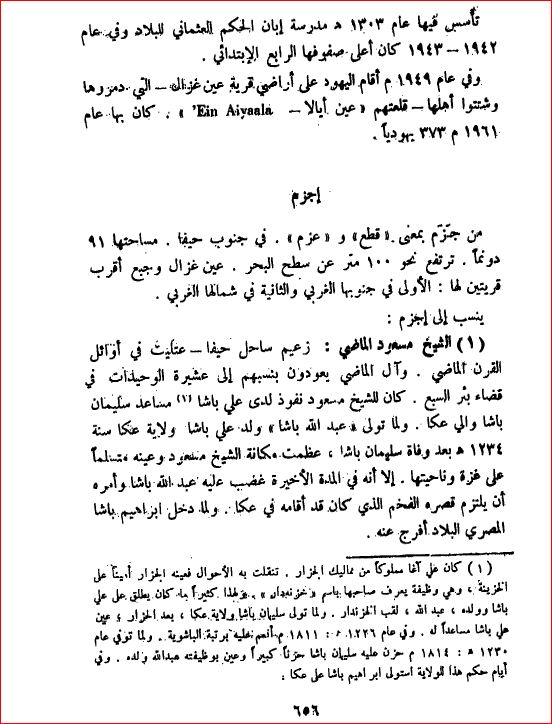 تأسس فيها عام ١٣٠٣ ه‍ مدرسة إبان الحكم العثماني للبلاد وفي عام
١٩٤٢ – ١٩٤٣ كان أعلى صفوفها الرابع الإبتدائي .
وفي عام ١٩٤٩ م أقام اليهود على أراضي قرية عين غزال – التي دمروها
وشتتوا أهلها – قلعتهم « عين أيالا – Ein Aiyaala' » . كان بها عام
١٩٦١ م ٣٧٣ يهودياً .
إجزم
من جَزَم بمعنى « قطع » و « عزم » . في جنوب حيفا . مساحتها ٩١
دونماً . ترتفع نحو ١٠٠ متر عن سطح البحر . عين غزال وجبع أقرب
قريتين لها : الأولى في جنوبها الغربي والثانية في شمالها الغربي .
ينسب إلى إجزم :
(١) الشيخ مسعود الماضي : زعيم ساحل حيفا – عتليت في أوائل
القرن الماضي . وآل الماضي يعودون بنسبهم إلى عشيرة الوحيدات في
قضاء بئر السبع . كان للشيخ مسعود نفوذ لدى علي باشا (١) مساعد سليمان
باشا والي عكا . ولما تولى « عبد الله باشا » ولد علي باشا ولاية عكا سنة
١٢٣٤ ه‍ بعد وفاة سليمان باشا ، عظمت مكانة الشيخ مسعود وعينه متسلماً
على غزة وناحيتها . إلا أنه في المدة الأخيرة غضب عليه عبد الله باشا وأمره
أن يلتزم قصره الفخم الذي كان قد أقامه في عكا . ولما دخل ابراهيم باشا
المصري البلاد أفرج عنه .
(١) كان علي آغا مملوكاً من مماليك الجزار . تنقلت به الأحوال فعينه الجزار أميناً على
الخزينة ، وهي وظيفة يعرف صاحبها باسم « خزندار » . ولهذا كثيراً ما كان يطلق على علي
باشا وولده ، عبد الله ، لقب الخزندار . ولما تولى سليمان باشا ولاية عكا ، بعد الجزار ، عين
علي باشا مساعداً له . وفي عام ١٢٢٦ ه‍ : ١٨١١ م أنعم عليه برتبة الباشوية . ولما توفي عام
١٢٣٠ ه‍ : ١٨١٤ م حزن عليه سليمان باشا حزناً كبيراً وعين بوظيفته عبدالله ولده . وفي
أيام حكم هذا للولاية استولى ابراهيم باشا على عكا .
٦٥٦